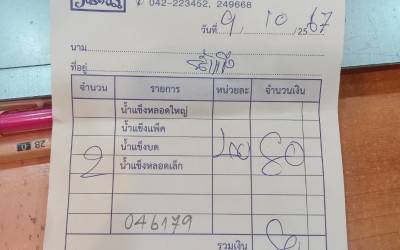 โทร 042-223452, 249668
วันที่ 9 / 10 / 2567
นาม
ที่อยู่
จำนวน รายการ หน่วยละ จำนวนเงิน
น้ำแข็งหลอดใหญ่
น้ำแข็งแพ็ค
น้ำแข็งบด
2 น้ำแข็งหลอดเล็ก 40 80
046179
รวมเงิน